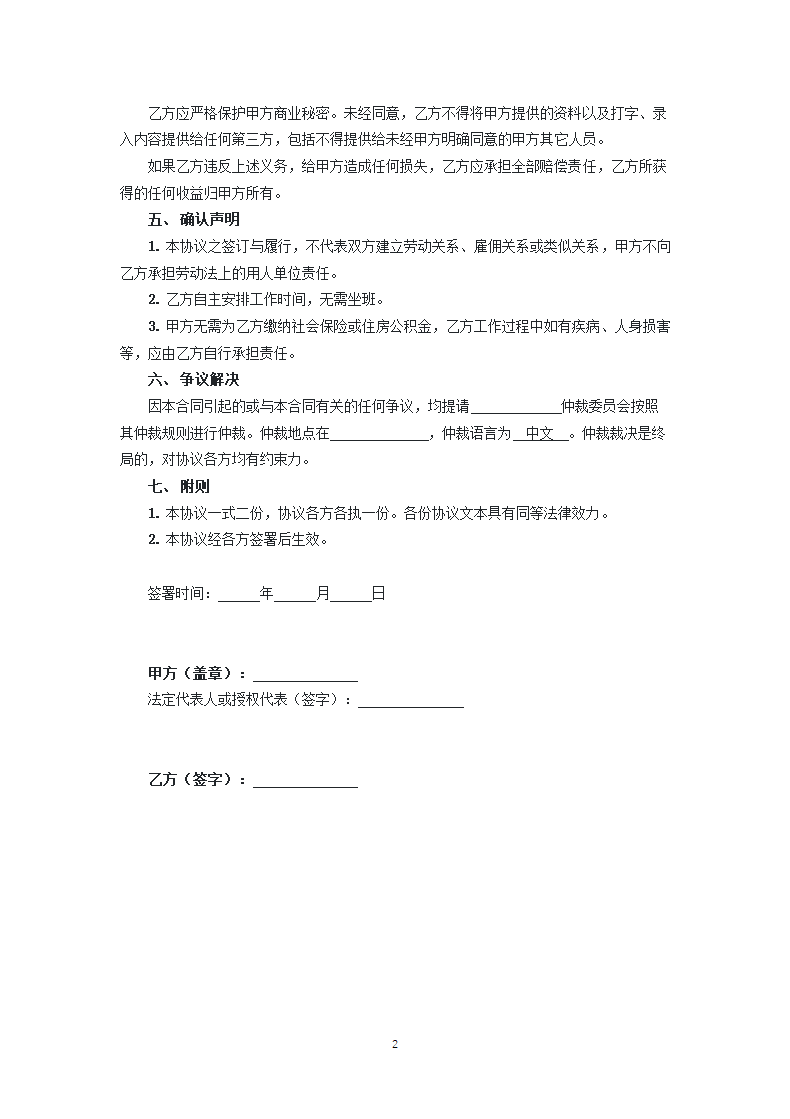 乙方应严格保护甲方商业秘密。未经同意，乙方不得将甲方提供的资料以及打字、录
入内容提供给任何第三方，包括不得提供给未经甲方明确同意的甲方其它人员。
如果乙方违反上述义务，给甲方造成任何损失，乙方应承担全部赔偿责任，乙方所获
得的任何收益归甲方所有。
五、确认声明
1. 本协议之签订与履行，不代表双方建立劳动关系、雇佣关系或类似关系，甲方不向
乙方承担劳动法上的用人单位责任。
2. 乙方自主安排工作时间，无需坐班。
3. 甲方无需为乙方缴纳社会保险或住房公积金，乙方工作过程中如有疾病、人身损害
等，应由乙方自行承担责任。
六、争议解决
因本合同引起的或与本合同有关的任何争议，均提请_____________仲裁委员会按照
其仲裁规则进行仲裁。仲裁地点在______________，仲裁语言为__中文__。仲裁裁决是终
局的，对协议各方均有约束力。
七、附则
1. 本协议一式二份，协议各方各执一份。各份协议文本具有同等法律效力。
2. 本协议经各方签署后生效。
签署时间：______年______月______日
甲方（盖章）：_______________
法定代表人或授权代表（签字）：_______________
乙方（签字）：_______________
2